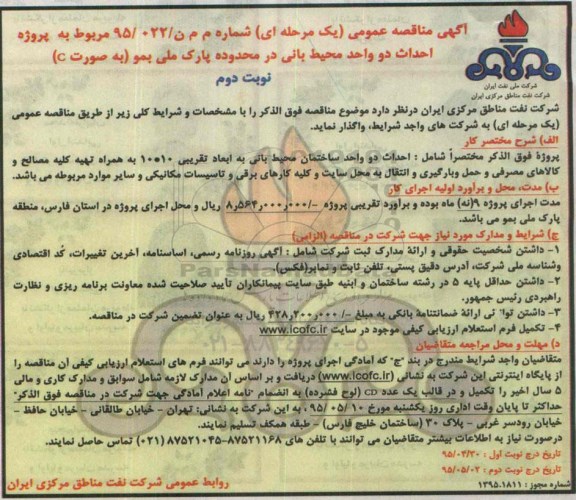 آگهی مناقصه عمومی (یک مرحله ای) شماره م م ن/۰۲۲/ ۹۵ مربوط به پروژه
احداث دو واحد محیط بانی در محدوده پارک ملی بمو (به صورت C)
نوبت دوم
شرکت ملی نفت ایران
شرکت نفت مناطق مرکزی ایران
شرکت نفت مناطق مرکزی ایران درنظر دارد موضوع مناقصه فوق الذکر را با مشخصات و شرایط کلی زیر از طریق مناقصه عمومی
(یک مرحله ای) به شرکت های واجد شرایط، واگذار نماید.
الف) شرح مختصر کار
پروژة فوق الذکر مختصراً شامل : احداث دو واحد ساختمان محیط بانی به ابعاد تقریبی ۱۰*۱۰ به همراه تهیه کلیه مصالح و
کالاهای مصرفی و حمل وبارگیری و انتقال به محل سایت و کلیه کارهای برقی و تاسیسات مکانیکی و سایر موارد مربوطه می باشد.
ب) مدت، محل و برآورد اولیه اجرای کار
مدت اجرای پروژه ۹(نه) ماه بوده و برآورد تقریبی پروژه -/۸٫۵۶۴٫۰۰۰٫۰۰۰ ریال و محل اجرای پروژه در استان فارس، منطقه
پارک ملی بمو می باشد.
ج) شرایط و مدارک مورد نیاز جهت شرکت در مناقصه (الزامی)
۱- داشتن شخصیت حقوقی و ارائة مدارک ثبت شرکت شامل : آگهی روزنامه رسمی، اساسنامه، آخرین تغییرات، کُد اقتصادی
وشناسه ملی شرکت، آدرس دقیق پستی، تلفن ثابت و نمابر(فکس)
۲- داشتن حداقل پایه ۵ در رشته ساختمان و ابنیه طبق سایت پیمانکاران تأیید صلاحیت شده معاونت برنامه ریزی و نظارت
راهبردی رئیس جمهور.
۳- داشتن توانائی ارائة ضمانتنامة بانکی به مبلغ -/۴۲۸٫۲۰۰٫۰۰۰ ریال به عنوان تضمین شرکت در مناقصه.
۴- تکمیل فرم استعلام ارزیابی کیفی موجود در سایت www.icofc.ir
د) مهلت و محل مراجعه متقاضیان
متقاضیان واجد شرایط مندرج در بند "ج" که آمادگی اجرای پروژه را دارند می توانند فرم های استعلام ارزیابی کیفی آن مناقصه را
از پایگاه اینترنتی این شرکت به نشانی (www.icofc.ir) دریافت و بر اساس آن مدارک لازمه شامل سوابق و مدارک کاری و مالی
۵ سال اخیر را تکمیل و در قالب یک عدد CD (لوح فشرده) به انضمام "نامه اعلام آمادگی جهت شرکت در مناقصه فوق الذکر"
حداکثر تا پایان وقت اداری روز یکشنبه مورخ ۱۰/ ۰۵/ ۹۵، به این شرکت به نشانی: تهران - خیابان طالقانی - خیابان حافظ -
خیابان رودسر غربی - پلاک ۳۰ (ساختمان خلیج فارس) - طبقه همکف تسلیم نمایند.
درصورت نیاز به اطلاعات بیشتر متقاضیان می توانند با تلفن های ۸۷۵۲۱۱۶۸-۸۷۵۲۱۰۴۵ (۰۲۱) تماس حاصل نمایند.
تاریخ درج نوبت اول : ۹۵/۰۴/۳۰
تاریخ درج نوبت دوم : ۹۵/۰۵/۰۲
شماره مجوز : ۱۳۹۵.۱۸۱۱
روابط عمومی شرکت نفت مناطق مرکزی ایران